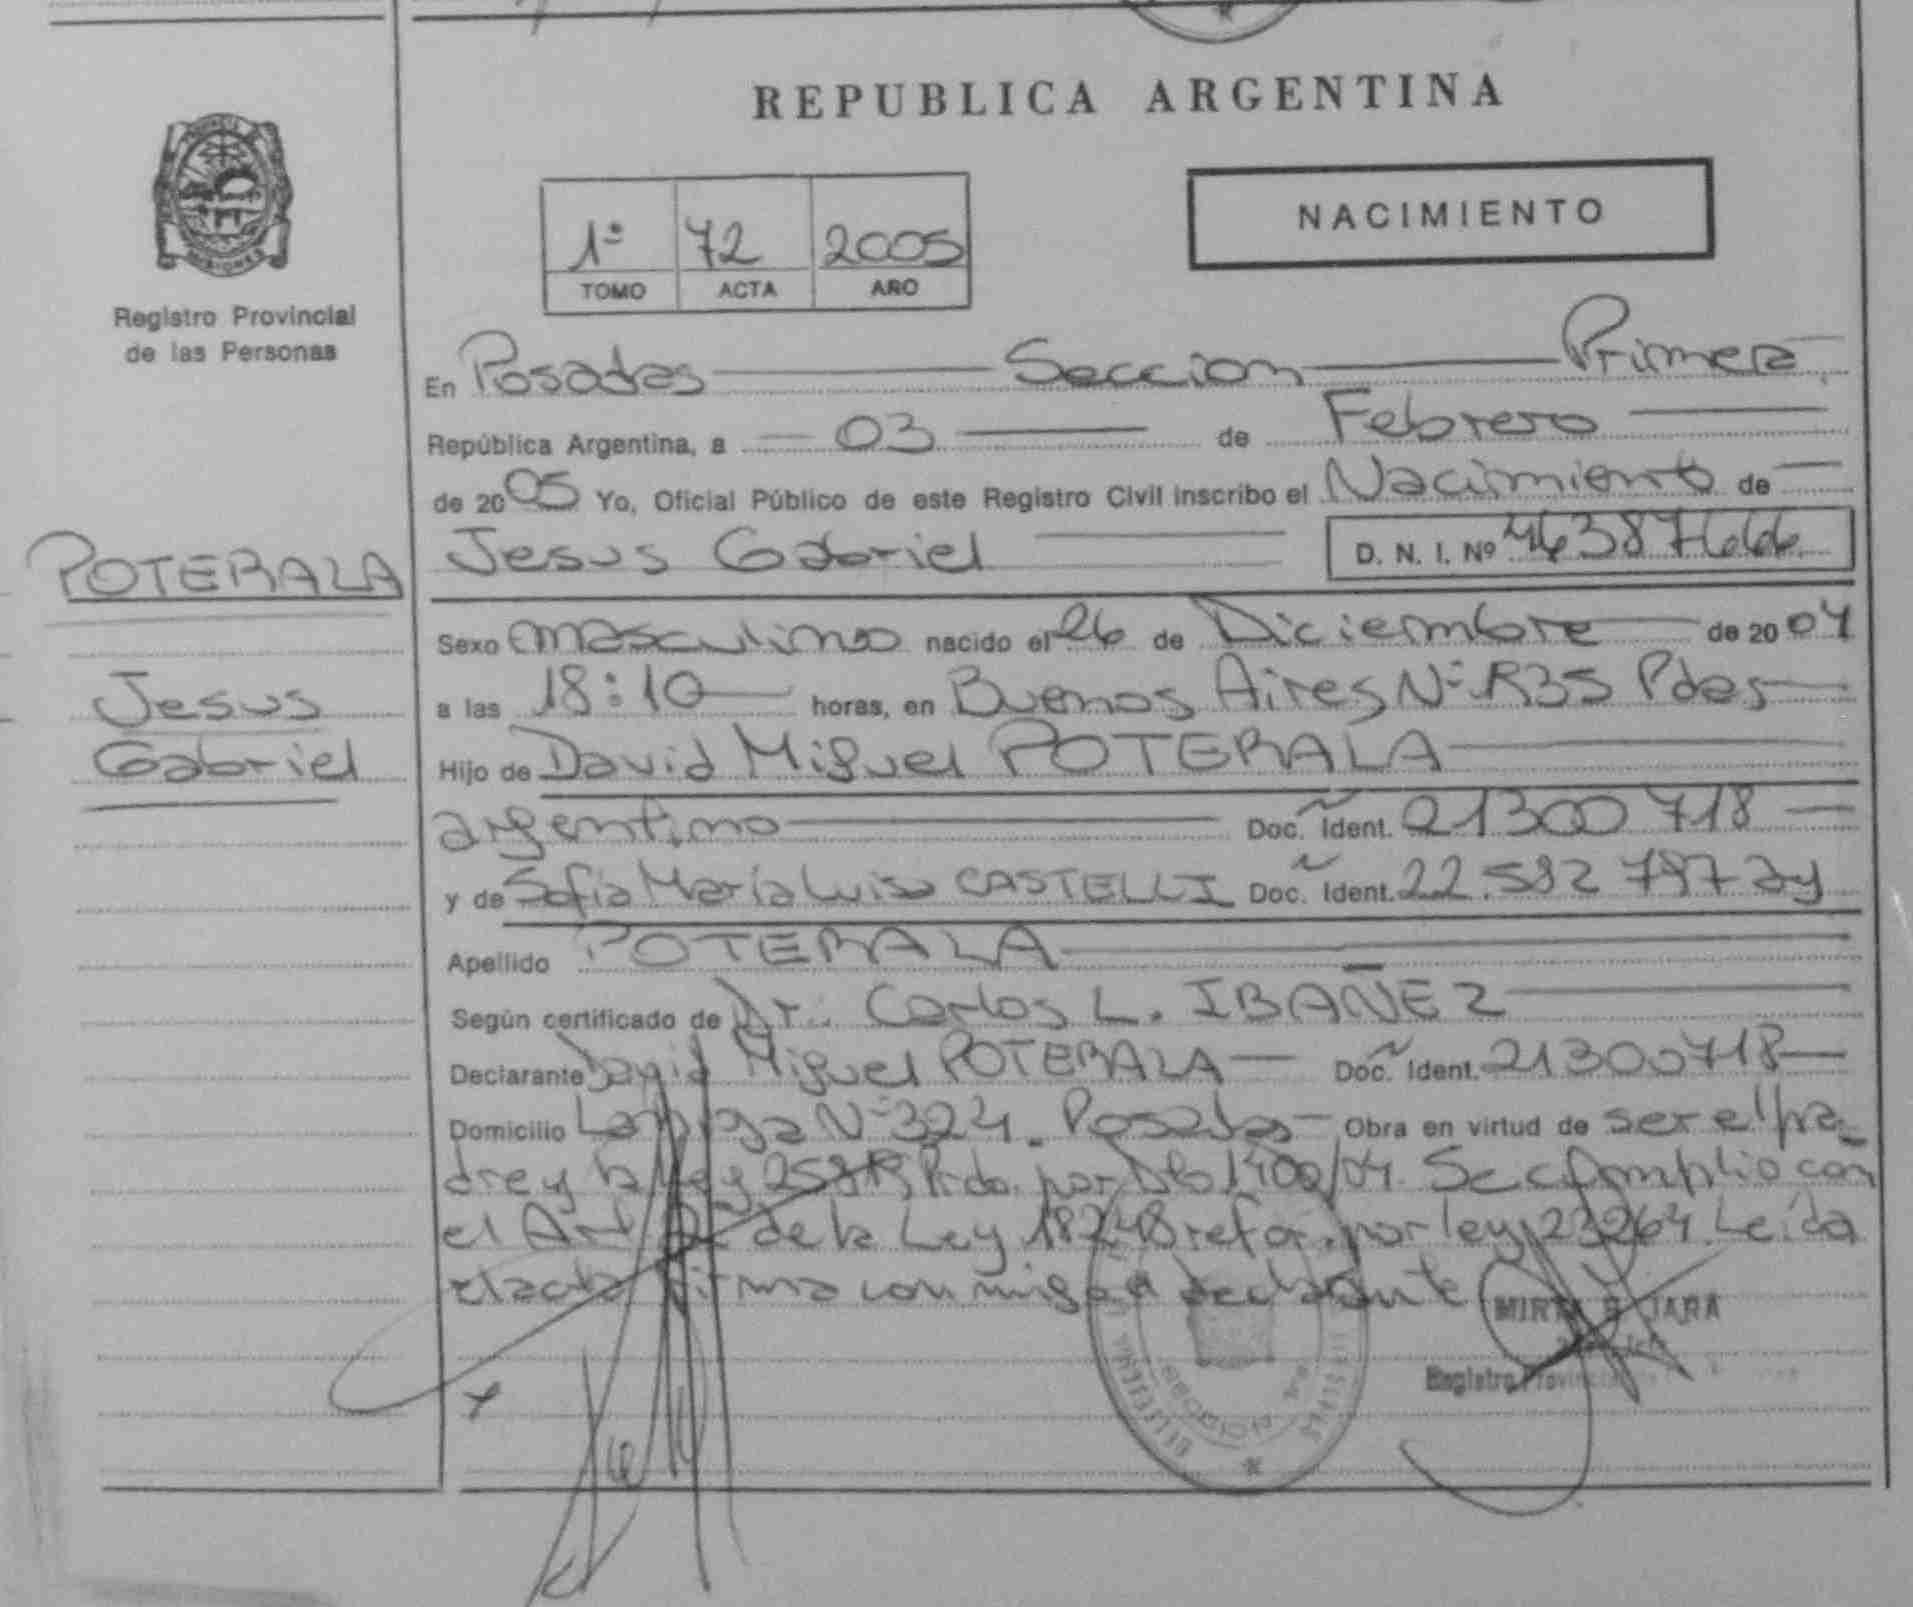 REPUBLICA ARGENTINA
PROVINCIA DE
MISIONES
Registro Provincial
de las Personas
1º 72 2005
TOMO ACTA AÑO
NACIMIENTO
En Posadas Seccion Primera
República Argentina, a 03 de Febrero
de 2005 Yo, Oficial Público de este Registro Civil inscribo el Nacimiento de
Jesus Gabriel D. N. I. Nº 46387666
POTERALA
Jesus
Gabriel
Sexo masculino nacido el 26 de Diciembre de 2004
a las 18:10 horas, en Buenos Aires Nº Pdas
Hijo de David Miguel POTERALA
argentino Doc. Ident. 21300718
y de Sofia Maria Luisa CASTELLI Doc. Ident. 22.592 797 ay
Apellido POTERALA
Según certificado de Dr. Carlos L. IBAÑEZ
Declarante David Miguel POTERALA Doc. Ident. 21300718
Domicilio Nº 324. Posadas Obra en virtud de ser el pa-
dre y la ley por Dto 1400/04. Se cumplio con
el Art de la Ley 18248 refor. por ley 23264. Leida
el acta firma conmigo el declarante
MIRTA JARA
Registro Provincial
SECCION 1ra